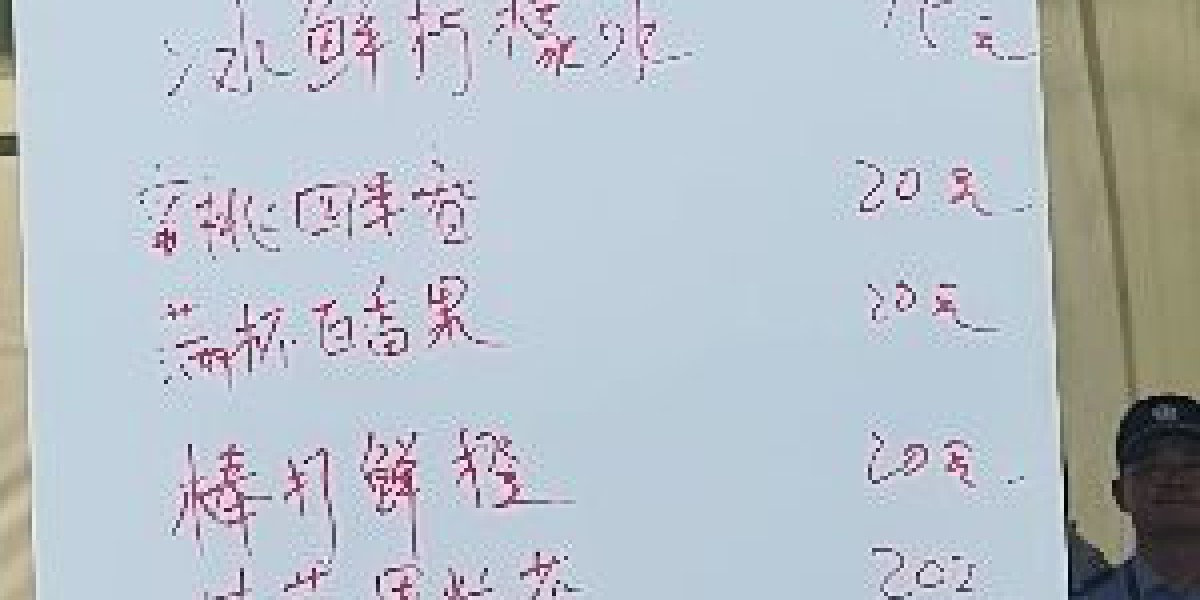 冰鲜柠檬水 元
蜜桃四季春 20元
满杯百香果 20元
棒打鲜橙 20元
20元